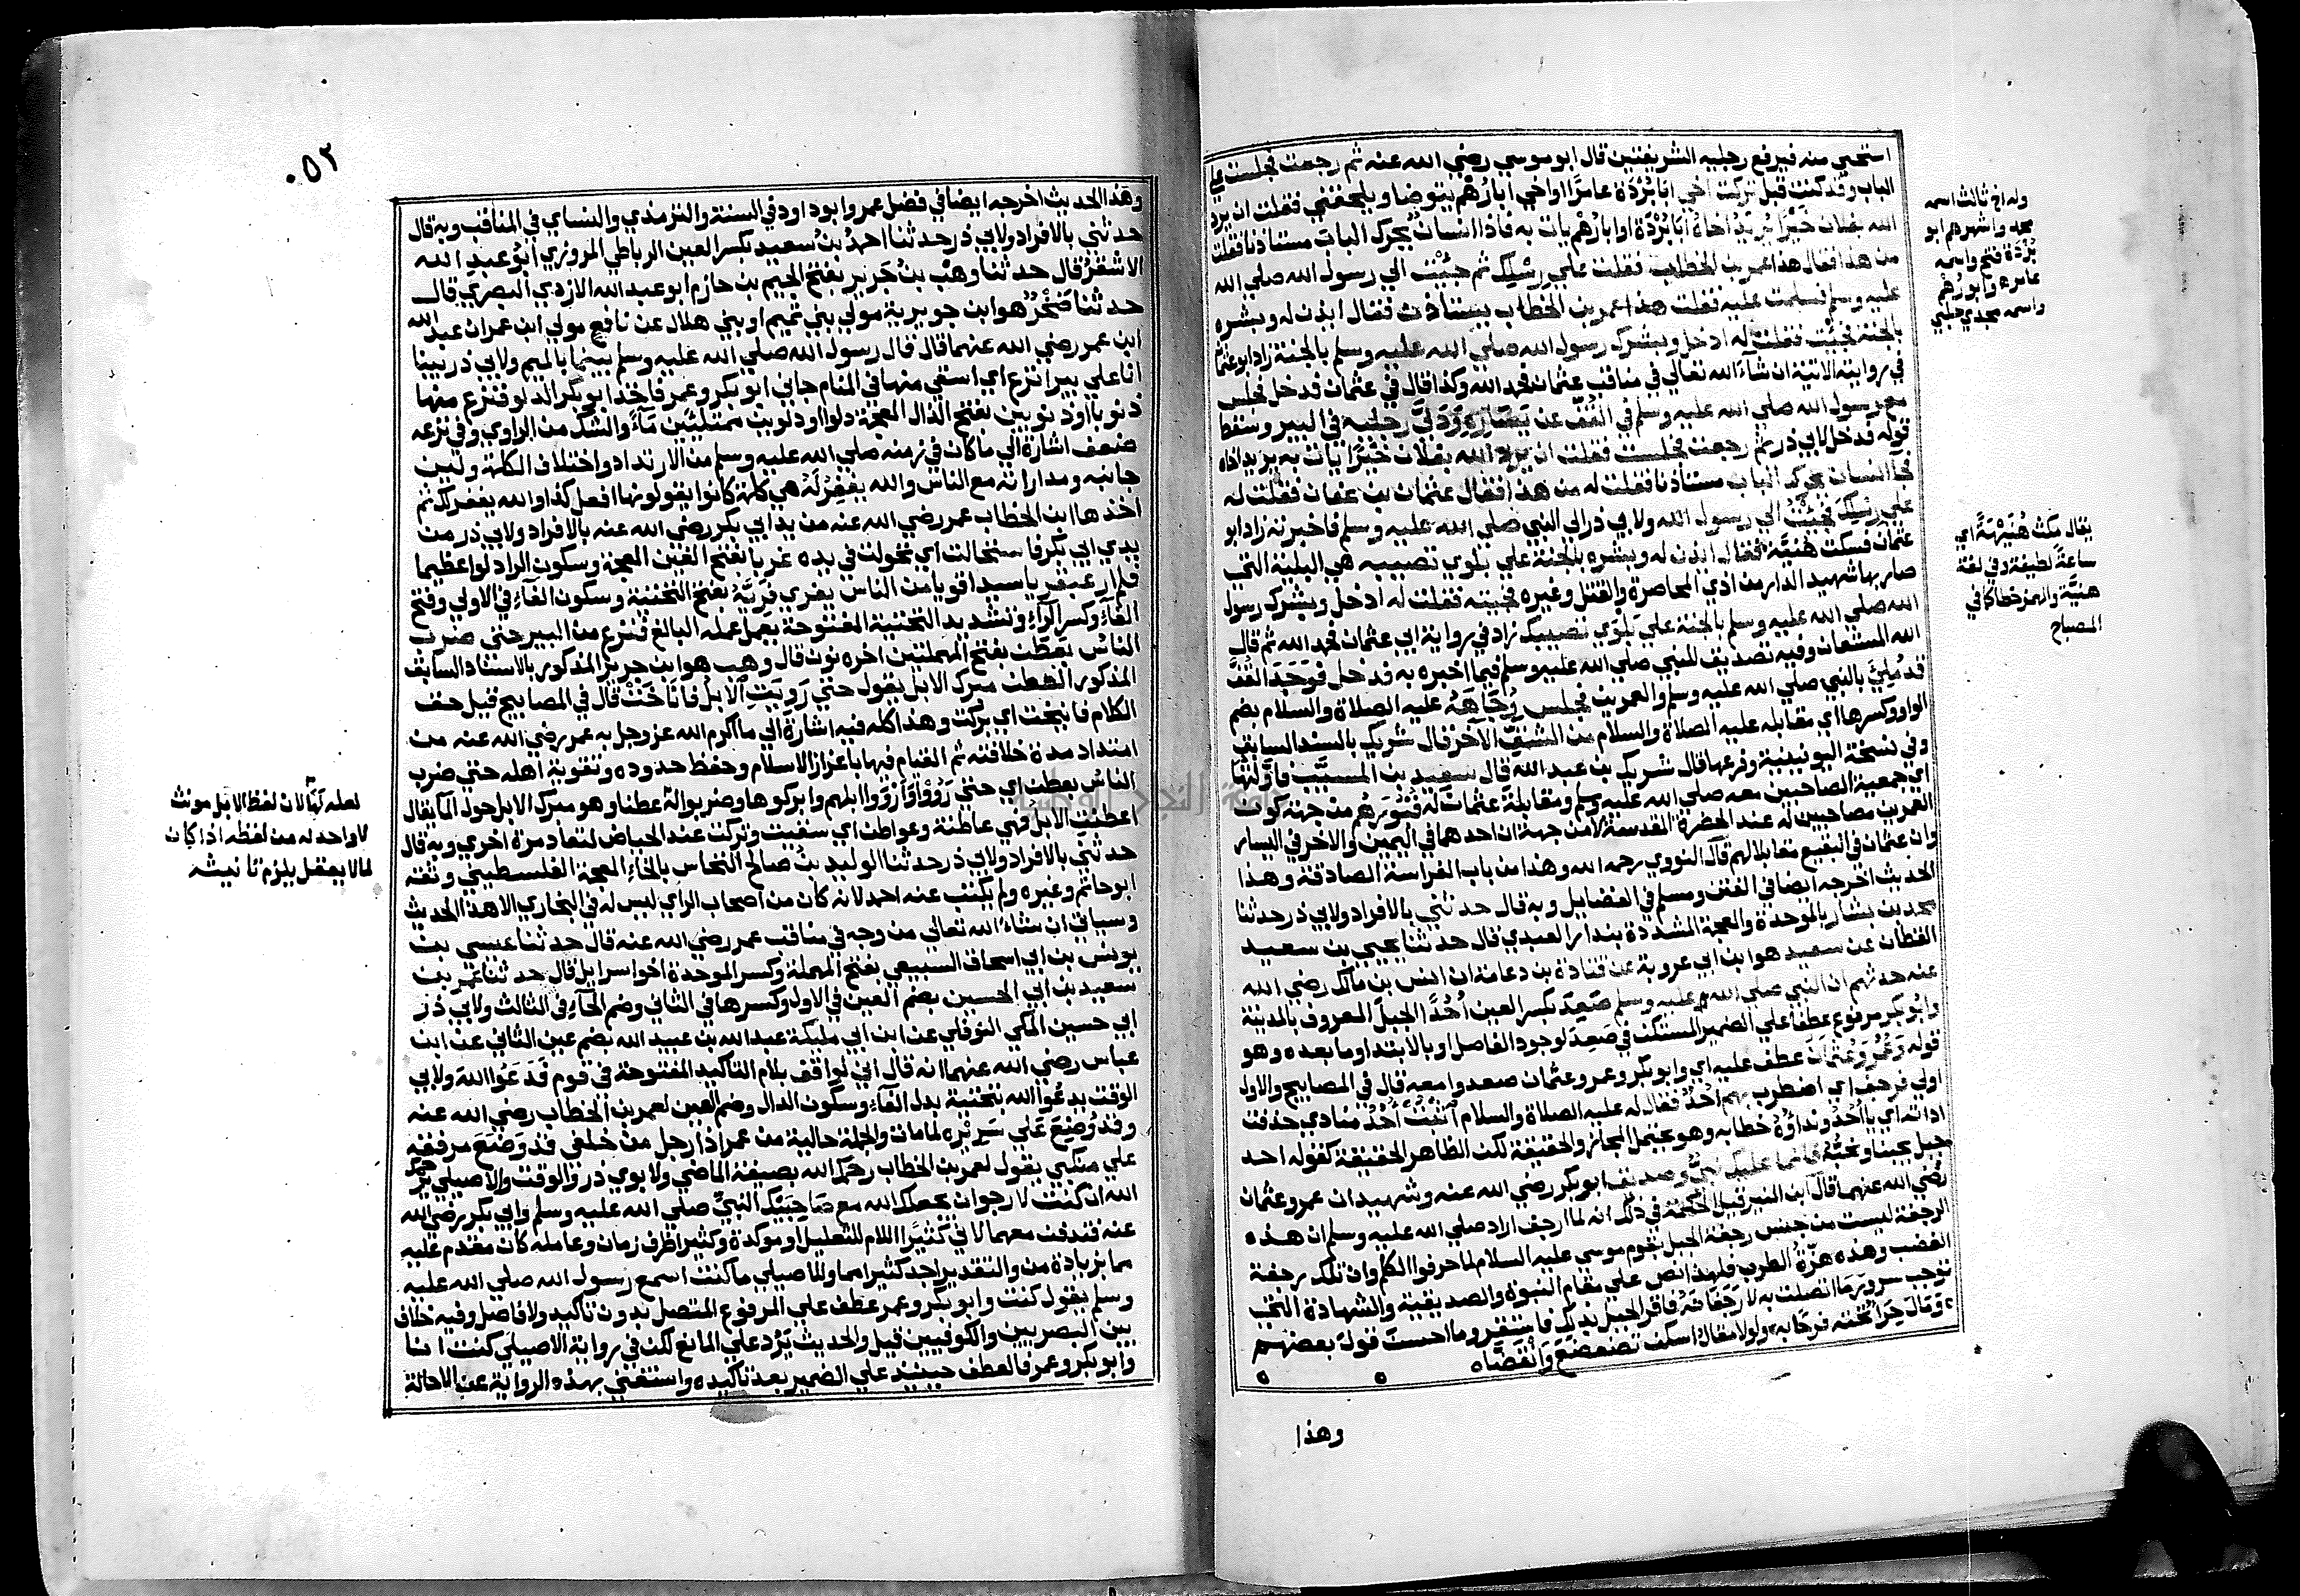 استحيي منه فيرفع رجليه الشريفتين قال ابو موسي رضي الله عنه ثم رجعت فجلست علي
الباب وقد كنت قبل تركت اخي ابا بردة عامرًا او اخي ابا رُهم يتوضا ويلحقني فقلت ان يرد
الله بفلان خيرًا يريد اخاه ابا بردة او ابا رُهم يات به فاذا انسان يحرك الباب مستاذنا فقلت
من هذا فقال هذا عمر بن الخطاب فقلت علي رِسْلِك ثم جئت الي رسول الله صلي الله
عليه وسلم فسلمت عليه فقلت هذا عمر بن الخطاب يستاذن فقال ايذن له وبشره
بالجنة فجئت فقلت له ادخل وبشرك رسول الله صلي الله عليه وسلم بالجنة زاد ابو عثمان
في روايته الاتية ان شاء الله تعالي في مناقب عثمان فحمد الله وكذا قال في عثمان فدخل فجلس
مع رسول الله صلي الله عليه وسلم في القُفّ عن يَسَارِهِ وَدَلَّي رجليه في البير وسقط
قوله فدخل لابي ذر ثم رجعت فجلست فقلت ان يرد الله بفلان خيرًا يات به يريد اخاه
فجا انسان يحرك الباب مستاذنا فقلت له من هذا فقال عثمان بن عفان فقلت له
علي رِسْلِك فجئت الي رسول الله ولابي ذر الي النبي صلي الله عليه وسلم فاخبرته زاد ابو
عثمان فسكت هُنَيَّة فقال ايذن له وبشره بالجنة علي بلوي تصيبه هي البلية التي
صار بها شهيد الدار من اذي المحاصرة والقتل وغيره فجيته فقلت له ادخل وبشرك رسول
الله صلي الله عليه وسلم بالجنة علي بَلْوَي تصيبك زاد في رواية ابي عثمان فحمد الله ثم قال
الله المستعان وفيه تصديق للنبي صلي الله عليه وسلم فيما اخبره به فدخل فوَجَدَ القُفَّ
قد مُلِئَ بالنبي صلي الله عليه وسلم والعمرين فجلس وُجَاهَهُ عليه الصلاة والسلام بضم
الواو وكسرها اي مقابله عليه الصلاة والسلام من الشقّ الآخر قال شريك بالسند السابق
وفي نسخة اليونينية وفرعها قال شريك بن عبد الله قال سعيد بن المسيَّب فاوَّلتُها
اي جمعية الصاحبين معه صلي الله عليه وسلم ومقابلة عثمان له قُبُورَهُم من جهة كون
العمرين مصاحبين له عند الحضرة المقدسة لا من جهة ان احدهما في اليمين والاخر في اليسار
وان عثمان في البقيع مقابلا لهم قال النووي رحمه الله وهذا من باب الفراسة الصادقة وهذا
الحديث اخرجه ايضا في الفتن ومسلم في الفضايل وبه قال حدثني بالافراد ولابي ذر حدثنا
محمد بن بشار بالموحدة والمعجمة المشددة بندار العبدي قال حدثنا يحيي بن سعيد
القطان عن سعيد هو ابن ابي عروبة عن قتادة بن دعامة ان انس بن مالك رضي الله
عنه حدثهم ان النبي صلي الله عليه وسلم صَعِدَ بكسر العين اُحُدًا الجبل المعروف بالمدينة
وابو بكر مرفوع عطفا علي الضمير المستكن في صَعِدَ لوجود الفاصل او بالابتدا وما بعده وهو
قوله وَعُمَرُ وَعُثمَانُ عطف عليه اي وابو بكر وعمر وعثمان صعدوا معه قال في المصابيح والاول
اولي فرجف اي اضطرب بهم اُحُدٌ فقال له عليه الصلاة والسلام اثْبُتْ اُحُدُ منادي حذفت
اداته اي يا اُحُدُ ونداؤه خطابه وهو يحتمل المجاز والحقيقة لكن الظاهر الحقيقة كقوله احد
جبل يحبنا ونحبُّهُ فانما عليك نبيٌّ وصديق ابو بكر رضي الله عنه وشهيدان عمر وعثمان
رضي الله عنهما قال ابن المنير قيل الحكمة في ذلك انه لما ارجف اراد صلي الله عليه وسلم ان هذه
الرجفة ليست من جنس رجفة الجبل بقوم موسي عليه السلام لما حرفوا الكلم وان تلك رجفة
الغضب وهذه هزّةُ الطرب فلهذا نص علي مقام النبوة والصديقية والشهادة التي
توجب سرور ما اتصلت به لا رَجَفَانَهُ فاقر الجبل بذلك فاستقر وما احسن قول بعضهم
وَمَالَ حِرَا تحته فرحًا به ولولا مقال اسكن تضعضع وَانقضّا
وهذا
وله اخ ثالث اسمه
محمد واشهرهم ابو
بُرْدة فتح واسمه
عامر وابو رُهم
واسمه مجدي حلبي
يقال مكث هُنَيْهَةً اي
ساعة لطيفة وفي لغة
هنيّة والهمز خطا كما في
المصباح
٥٣
وهذا الحديث اخرجه ايضا في فضل عمر وابو داود في السنة والترمذي والنساي في المناقب وبه قال
حدثني بالافراد ولابي ذر حدثنا احمدُ بنُ سعيد بكسر العين الرباطي المروزي ابو عبد الله
الاشقرُ قال حدثنا وهب بنُ جَرير بفتح الجيم بن حازم ابو عبد الله الازدي البصري قال
حدثنا صَخْرٌ هو ابن جويرية مولي بني تميم او بني هلال عن نافع مولي ابن عمر ان عبد الله
ابن عمر رضي الله عنهما قال قال رسول الله صلي الله عليه وسلم بينما بالميم ولابي ذر بينا
انا علي بير انزع اي استقي منها في المنام جاني ابو بكر وعمر فاخذ ابو بكر الدلو فنزع منها
ذنوبا او ذنوبين بفتح الذال المعجمة دلوا او دلوين ممتلئين مَاءً والشك من الراوي وفي نزعه
ضعف اشارة الي ما كان في زمنه صلي الله عليه وسلم من الارتداد واختلاف الكلمة ولين
جانبه ومداراته مع الناس والله يغفر لَهُ هي كلمة كانوا يقولونها افعل كذا والله يغفر لك ثم
اخذها ابن الخطاب عمر رضي الله عنه من يد ابي بكر رضي الله عنه بالافراد ولابي ذر من
يدي ابي بكر فاستحالت اي تحولت في يده غربا بفتح الغين المعجمة وسكون الرا دلوا عظيما
فلم ار عبقريا سيدا قويا من الناس يفري فَرِيَّهُ بفتح التحتية وسكون الفاء في الاولي وفتح
الفاء وكسر الراء وتشديد التحتية المفتوحة يعمل عمله البالغ فنزع من البير حتي ضرب
الناس بِعَطَن بفتح المهملتين اخره نون قال وهب هو ابن جرير المذكور بالاسناد السابق
المذكور العطن مبرك الابل يقول حتي رَويَتِ الابلُ فاناخَتْ قال في المصابيح قيل حق
الكلام فانيخت اي بُركت وهذا كله فيه اشارة الي ما اكرم الله عز وجل به عمر رضي الله عنه من
امتداد مدة خلافته ثم القيام فيها باعزاز الاسلام وحفظ حدوده وتقوية اهله حتي ضرب
الناس بعطن اي حتي رَوُوْا وَاَرْوَوا ابلهم وابركوها وضربوا له عطنا وهو مبرك الابل حول الما يقال
اعطنتِ الابل فهي عاطنة وعواطن اي سقيت وتركت عند الحياض لتعاد مرة اخري وبه قال
حدثني بالافراد ولابي ذر حدثنا الوليد بنُ صالح النخاس بالخاء المعجمة الفلسطيني وثقه
ابو حاتم وغيره ولم يكتب عنه احمد لانه كان من اصحاب الراي ليس له في البخاري الا هذا الحديث
وسياتي ان شاء الله تعالي من وجه في مناقب عمر رضي الله عنه قال حدثنا عيسي بن
يونس بن ابي اسحاق السبيعي بفتح المهملة وكسر الموحدة اخو اسرايل قال حدثنا عُمر بن
سعيد بن ابي الحسين بضم العين في الاول وكسرها في الثاني وضم الحاء في الثالث ولابي ذر
ابي حسين المكي النوفلي عن ابن ابي مليكة عبد الله بن عبيد الله بضم عين الثاني عن ابن
عباس رضي الله عنهما انه قال اني لَواقف بلام التاكيد المفتوحة في قوم فَدَعَوُا اللهَ ولابي
الوقت يدعُوا الله بتحتية بدل الفاء وسكون الدال وضم العين لعمر بن الخطاب رضي الله عنه
وقد وُضِعَ عَلي سَرِيْره لما مات والجملة حالية من عمر اذا رجل من خلفي قد وَضَعَ مرفقه
علي منكبي يقول لعمر بن الخطاب رحمك الله بصيغة الماضي ولابوي ذر والوقت والاصيلي يرحمك
الله ان كنت لارجو ان يجعلك الله مع صَاحِبَيْك النبيِّ صلي الله عليه وسلم وابي بكر رضي الله
عنه فتدفن معهما لاني كثيرًا اللام للتعليل او موكدة وكثيرا ظرف زمان وعامله كان مقدم عليه
مما بزيادة من والتقدير اجد كثيرا مما وللاصيلي ما كنت اسمع رسول الله صلي الله عليه
وسلم يقول كنت وابو بكر وعمر عطف علي المرفوع المتصل بدون تاكيد ولا فاصل وفيه خلاف
بين البصريين والكوفيين قيل والحديث يَرُد علي المانع لكن في رواية الاصيلي كنت انا
وابو بكر وعمر فالعطف حينيذ علي الضمير بعد تاكيده واستغني بهذه الرواية عن الاحالة
لان لفظ الابل مونث
لا واحد له من لفظه اذا كان
لما لا يعقل يلزم تانيثه